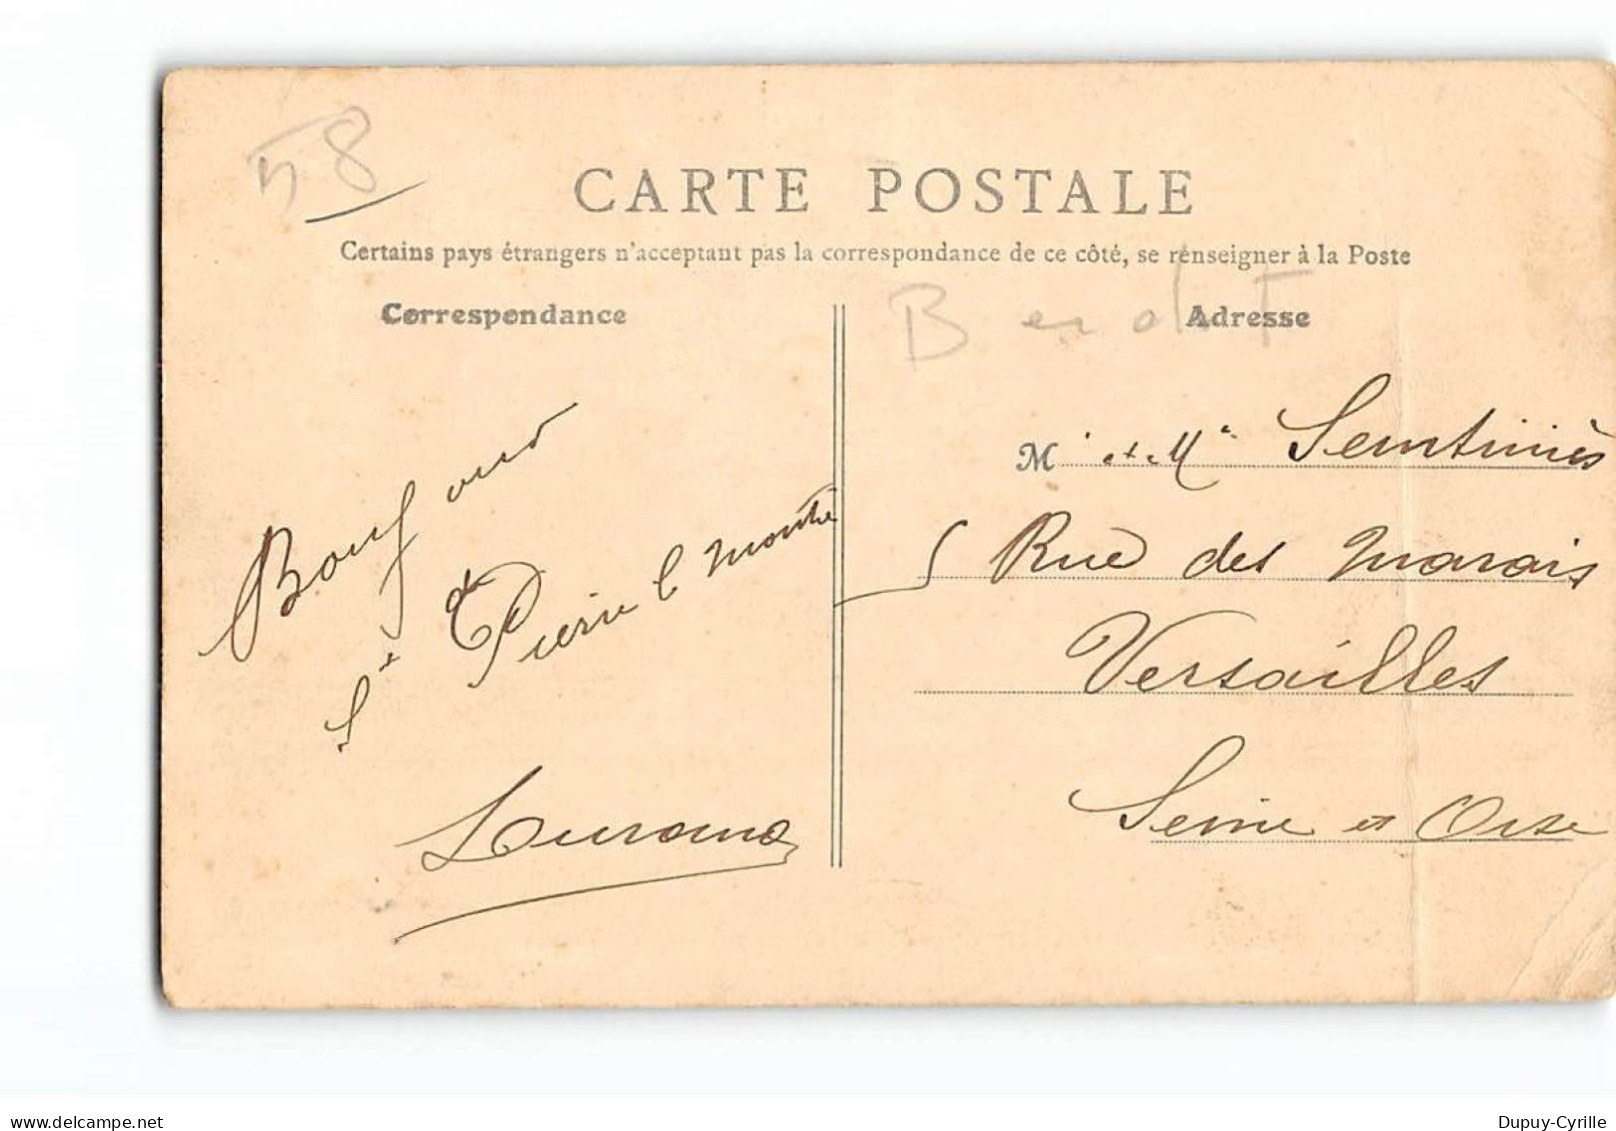 58
CARTE POSTALE
Certains pays étrangers n'acceptant pas la correspondance de ce côté, se renseigner à la Poste
Correspondance
Adresse
de
St Pierre l Montié
M. et Me
5 Rue des Marais
Versailles
Seine et Oise
www.delcampe.net
Dupuy-Cyrille